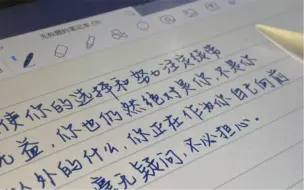 无标题的笔记本 (3)
使你的选择和努力注定徒劳
无益，你也仍然绝对是你，不是你
以外的什么，你正在作为你自己向前
毫无疑问，不必担心．